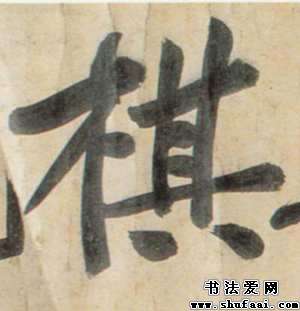 棋
书法爱网
www.shufaai.com